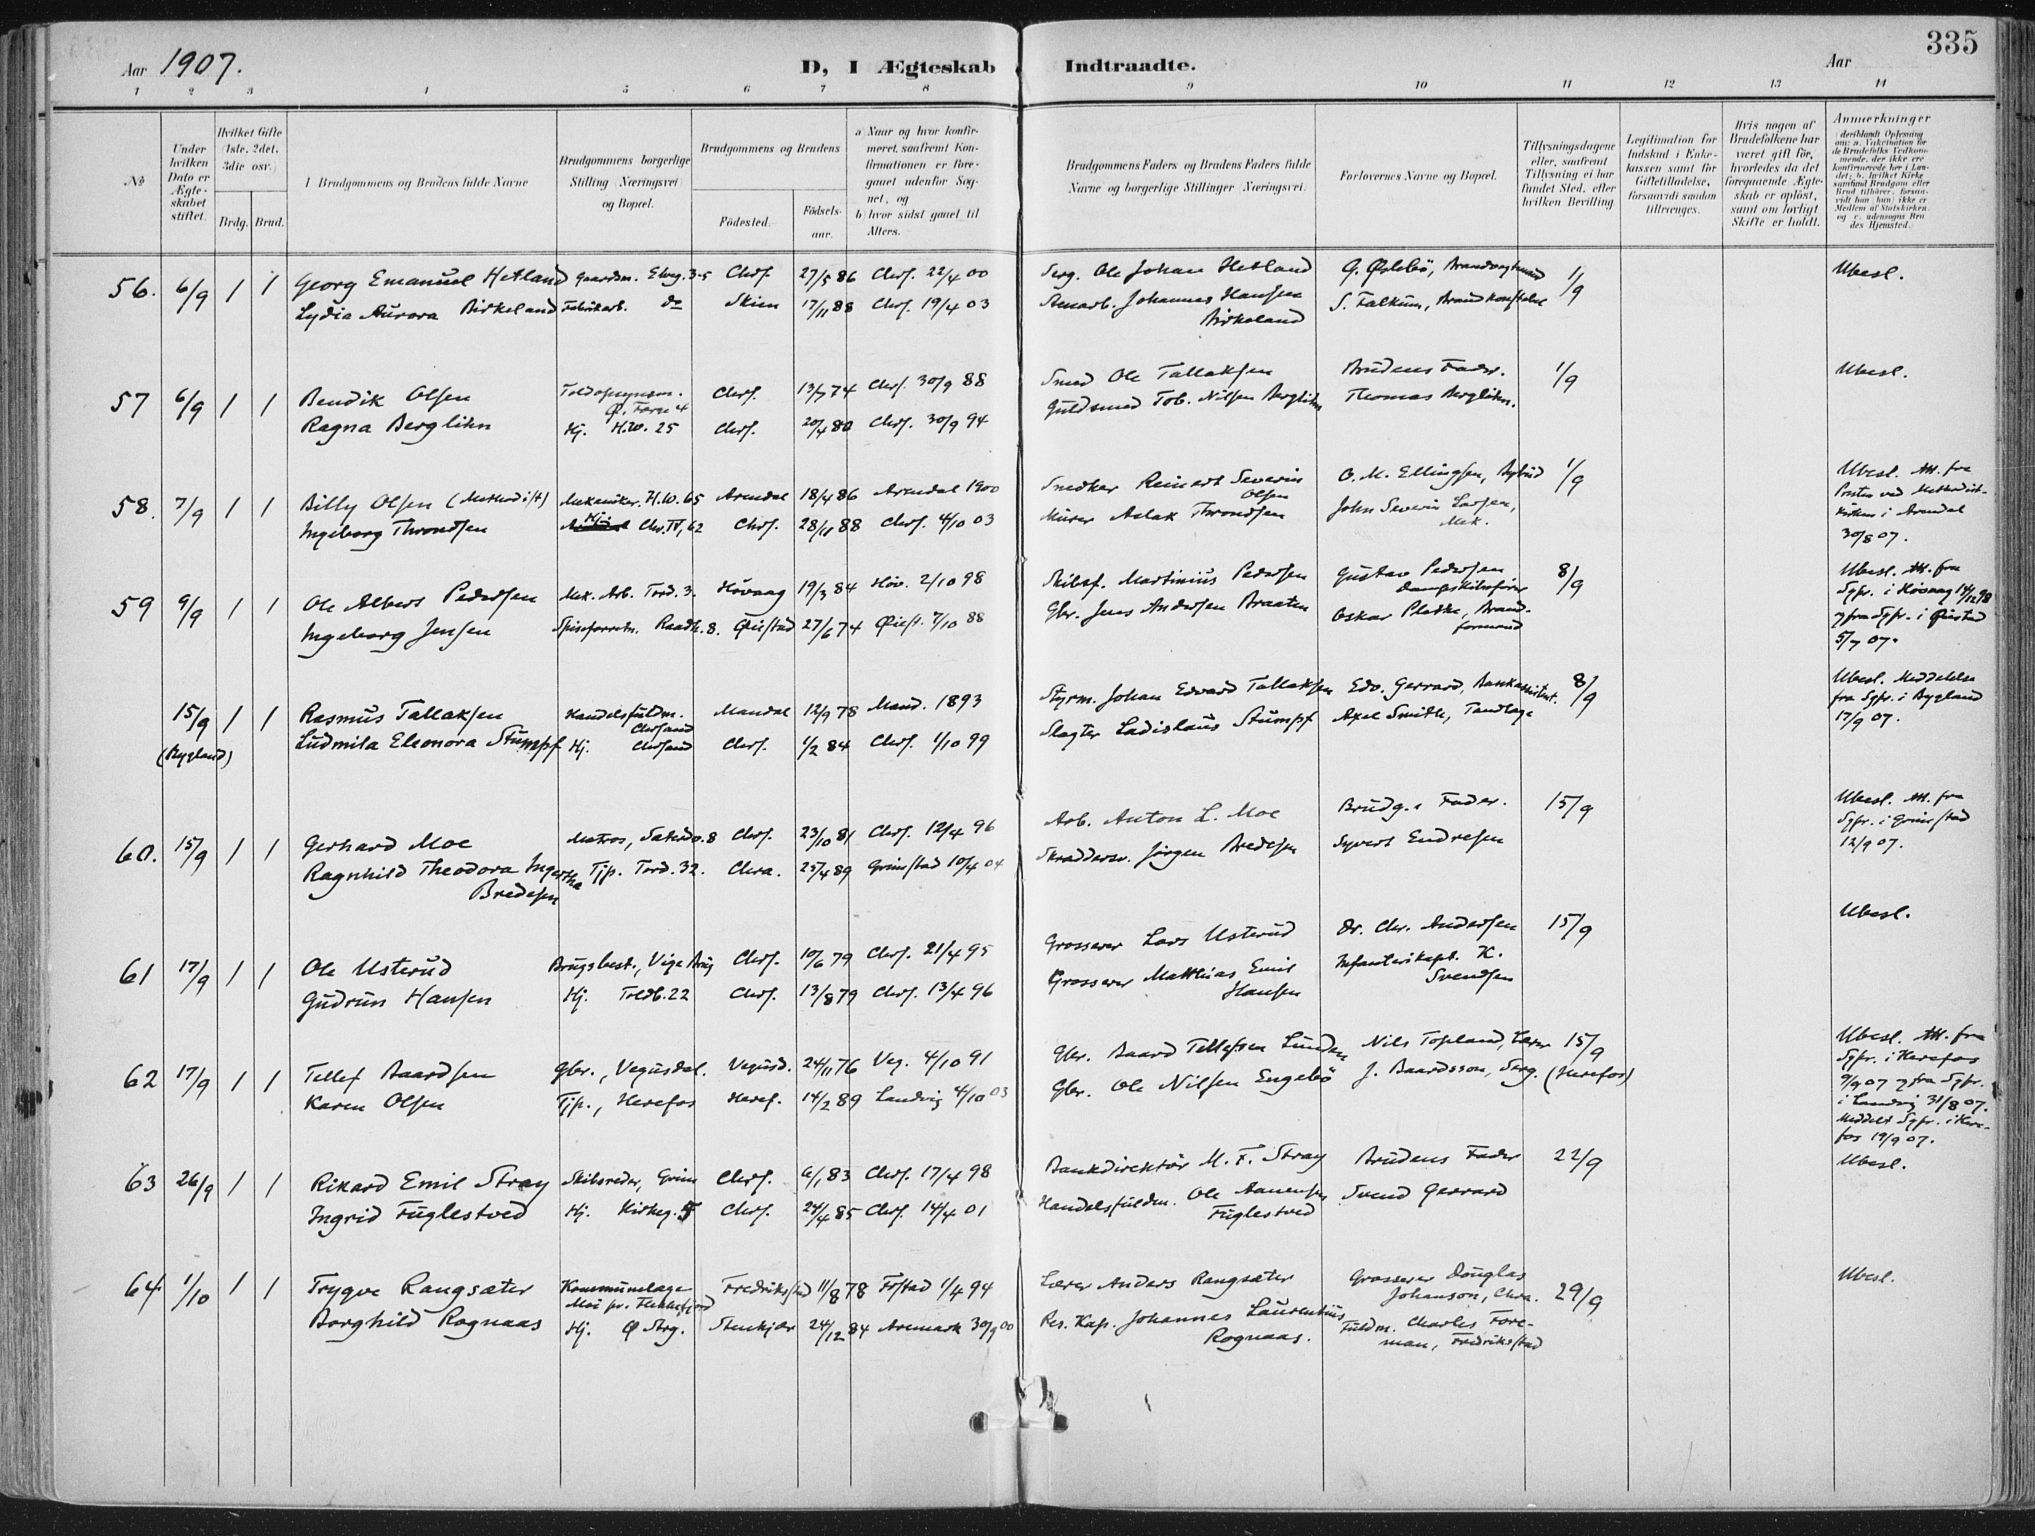 335
Aar 1907.
D, I Ægteskab Indtraadte.
Aar
1 2 3 4 5 6 7 8 9 10 11 12 13 14
No
Under hvilken Dato er Ægteskabet stiftet.
Hvilket Gifte (1ste, 2det, 3die osv.)
Brdg. Brud.
Brudgommens og Brudens fulde Navne
Brudgommens borgerlige Stilling (Næringsvei) og Bopæl.
Brudgommens og Brudens
Fødested.
Fødselsaar.
a) Naar og hvor konfirmeret, saafremt Konfirmationen er foregaaet udenfor Sognet, og
b) hvor sidst gaaet til Alters.
Brudgommens Faders og Brudens Faders fulde Navne og borgerlige Stillinger (Næringsvei)
Forlovernes Navne og Bopæl.
Tillysningsdagene eller, saafremt Tillysning ei har fundet Sted, efter hvilken Bevilling
Legitimation for Indskud i Enkekassen samt for Giftetilladelse, forsaavidt saadan tiltrænges.
Hvis nogen af Brudefolkene har været gift før, hvorledes da det foregaaende Ægteskab er opløst, samt om lovligt Skifte er holdt.
Anmerkninger
56. 6/9 1 1 Georg Emanuel Hetland Gaardsm. Elveg. 3-5 Chrs. 27/5 86 Chrs. 22/4 00 Serg. Ole Johan Hetland G. Øslebø, 1/9 Ubesl.
Lydia Aurora Birkeland Fabrikarb. do Skien 17/11 88 Chrs. 19/4 03 Johannes Hansen Birkeland S. Falkum, Brandkonstabel
57 6/9 1 1 Bendik Olsen Toldopsynsm. Chrs. 13/7 74 Chrs. 30/9 88 Smed Ole Tallaksen Brudens Fader. 1/9 Ubesl.
Ragna Berglihn Hj. H.W. 25 Chrs. 20/4 80 Chrs. 30/9 94 Guldsmed Tob. Nilsen Berglihn Thomas Berglihn.
58. 7/9 1 1 Billy Olsen (Methodist) Mekaniker. H.W. 65 Arendal 18/4 86 Arendal 1900 Snedker Reinert Severin Olsen O. M. Ellingsen, Bybud 1/9 Ubesl. Att. fra Presten ved Methodistkirken i Arendal 30/8 07.
Ingeborg Throndsen Hj. Chr. IV, 62 Chrs. 28/11 88 Chrs. 4/10 03 Murer Aslak Throndsen John Severin Larsen, Mek.
59 9/9 1 1 Ole Albert Pedersen Mek. Arb. Tord. 3. Høvaag 19/3 84 Høv. 2/10 98 Skibsf. Martinius Pedersen Gustav Pedersen Dampskibsfører 8/9 Ubesl. Att. fra Sgpr. i Høvaag 14/12 98 og fra Sgpr. i Øiestad 5/7 07.
Ingeborg Jensen Spiseforretn. Raadh. 8. Øiestad 27/6 74 Øiest. 7/10 88 Gbr. Jens Andersen Braaten Oskar Pladke, Brandformand
15/9 (Bygland) 1 1 Rasmus Tallaksen Handelsfuldm. Chrsand Mandal 12/9 78 Mand. 1893 Styrm. Johan Edvard Tallaksen Edv. Gerrard, Bankassistent. 8/9 Ubesl. Meddelelse fra Sgpr. i Bygland 17/9 07.
Ludmila Eleonora Stumpf Hj. Chrsand Chrs. 1/2 84 Chrs. 1/10 99 Slagter Ladislaus Stumpf Axel Smith, Tandlæge
60. 15/9 1 1 Gerhard Moe Matros, 8 Chrs. 23/10 81 Chrs. 12/4 96 Arb. Anton L. Moe Brudg.s Fader. 15/9 Ubesl. Att. fra Sgpr. i Grimstad 12/9 07.
Ragnhild Theodora Ingertha Bredesen Tjp. Tord. 32. Chra. 25/4 89 Grimstad 10/4 04 Skræddersv. Jørgen Bredesen Syvert Endresen
61 17/9 1 1 Ole Usterud Brugsbest., Vige Brug Chrs. 10/6 79 Chrs. 21/4 95 Grosserer Lars Usterud Dr. Chr. Andersen 15/9 Ubesl.
Gudrun Hansen Hj. Toldb. 22 Chrs. 13/8 79 Chrs. 13/4 96 Grosserer Matthias Emil Hansen Infanterikapt. K. Svendsen
62 17/9 1 1 Tellef Baardsen Gbr., Vegusdal. Vegusd. 24/11 76 Veg. 4/10 91 Gbr. Baard Tellefsen Lunden Nils Topland, Lærer 15/9 (Herefos) Ubesl. Att. fra Sgpr. i Herefos 9/9 07 og fra Sgpr. i Landvig 31/8 07. Meddelt Sgpr. i Herefos 19/9 07.
Karen Olsen Tjp., Herefos Heref. 14/2 89 Landvig 4/10 03 Gbr. Ole Nilsen Engebø J. Baardsson, Serg.
63 26/9 1 1 Rikard Emil Stray Skibsreder, Grim Chrs. 6/1 83 Chrs. 17/4 98 Bankdirektør M. F. Stray Brudens Fader 22/9 Ubesl.
Ingrid Fuglestved Hj. Kirkeg. 5 Chrs. 24/4 85 Chrs. 14/4 01 Handelsfuldm. Ole Aanensen Fuglestved Svend Gerrard
64. 1/10 1 1 Trygve Rangsæter Kommunelæge Moi pr. Flekkefjord Fredrikstad 11/8 78 Fstad 1/4 94 Lærer Anders Rangsæter Grosserer Douglas Johanson, Chra. 29/9 Ubesl.
Borghild Rognaas Hj. Ø Strg. Stenkjær 24/12 84 Aremark 30/9 00 Res. Kap. Johannes Laurentius Rognaas. Fuldm. Charles Foreman, Fredrikstad